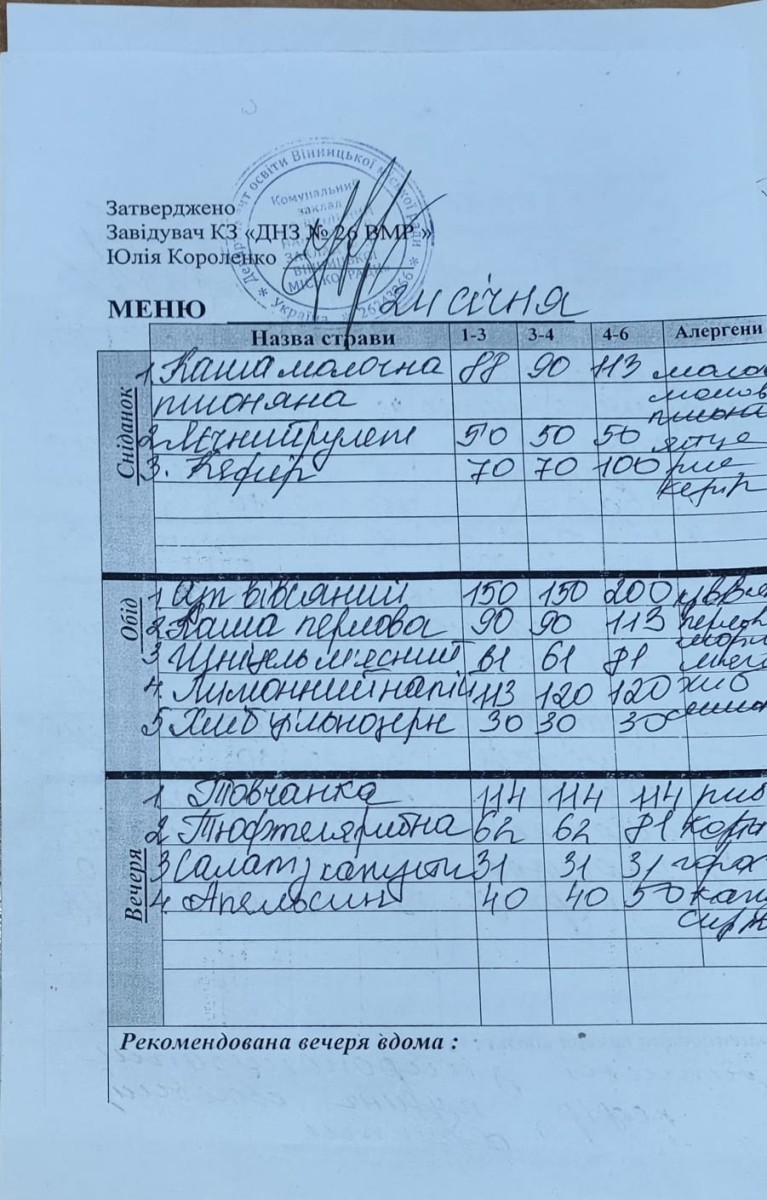 Департамент освіти Вінницької міської ради
Комунальний
заклад
Україна * 26243266 *
Затверджено
Завідувач КЗ «ДНЗ № 26 ВМР »
Юлія Короленко
МЕНЮ 24 січня
Назва страви 1-3 3-4 4-6 Алергени
Сніданок
1. Каша молочна 88 90 113 моло
пшоняна
пшона
2. Яєчний рулет 50 50 50 яйце
3. Кефір 70 70 100
кефір
Обід
1 Суп вівсяний 150 150 200
2. Каша перлова 90 90 113 перлов
3 Шніцель м'ясний 61 61 81
4. Лимонний напій 113 120 120
5 Хліб цільнозерн 30 30 30
Вечеря
1 Товчанка 114 114 114 риб
2 Тюфтеля рибна 62 62 81
3 Салат з капусти 31 31 31 горох
4. Апельсин 40 40 50 кап
Рекомендована вечеря вдома :